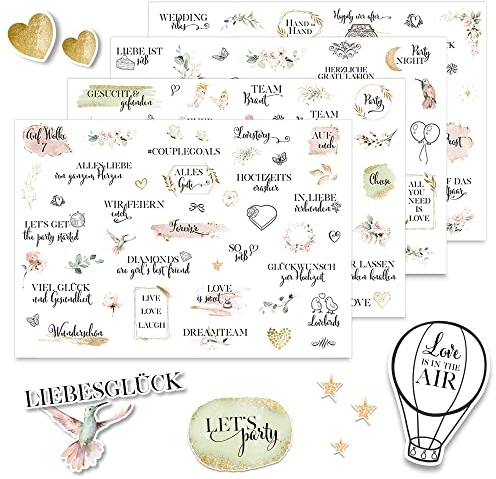 WEDDING
vibes
HAND IN
HAND
Happily ever after
LIEBE IST
süß
HERZLICHE
GRATULATION
Party
NIGHT
GESUCHT &
gefunden
TEAM
Braut
TEAM
Party
Cheese
ALL
YOU
NEED
IS
LOVE
Auf Wolke
7
#COUPLEGOALS
Lovestory
AUF
euch
ALLES LIEBE
von ganzem Herzen
ALLES
Gute
HOCHZEITS
crasher
WIR FEIERN
euch
IN LIEBE
verbunden
LET'S GET
the party started
Forever
SO
süß
DIAMONDS
are girl's best friend
GLÜCKWUNSCH
zur Hochzeit
VIEL GLÜCK
und Gesundheit
LIVE
LOVE
LAUGH
LOVE
is sweet
Lovebirds
Wunderschön
DREAMTEAM
LASSEN
knallen
LIEBESGLÜCK
LET'S
party
Love
IS IN THE
AIR